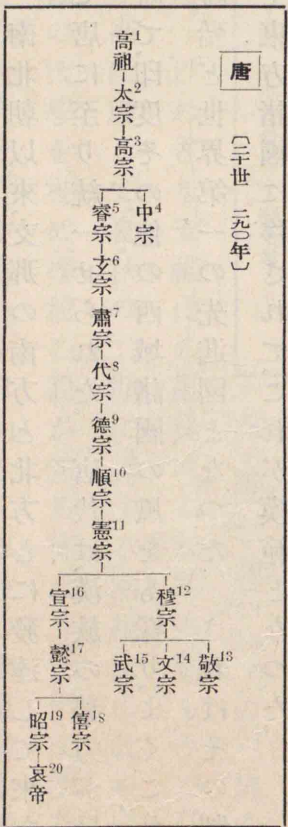 唐 〔二十世 二九〇年〕
高祖1
太宗2
高宗3
中宗4
睿宗5
玄宗6
肅宗7
代宗8
德宗9
順宗10
憲宗11
穆宗12
敬宗13
文宗14
武宗15
宣宗16
懿宗17
僖宗18
昭宗19
哀帝20